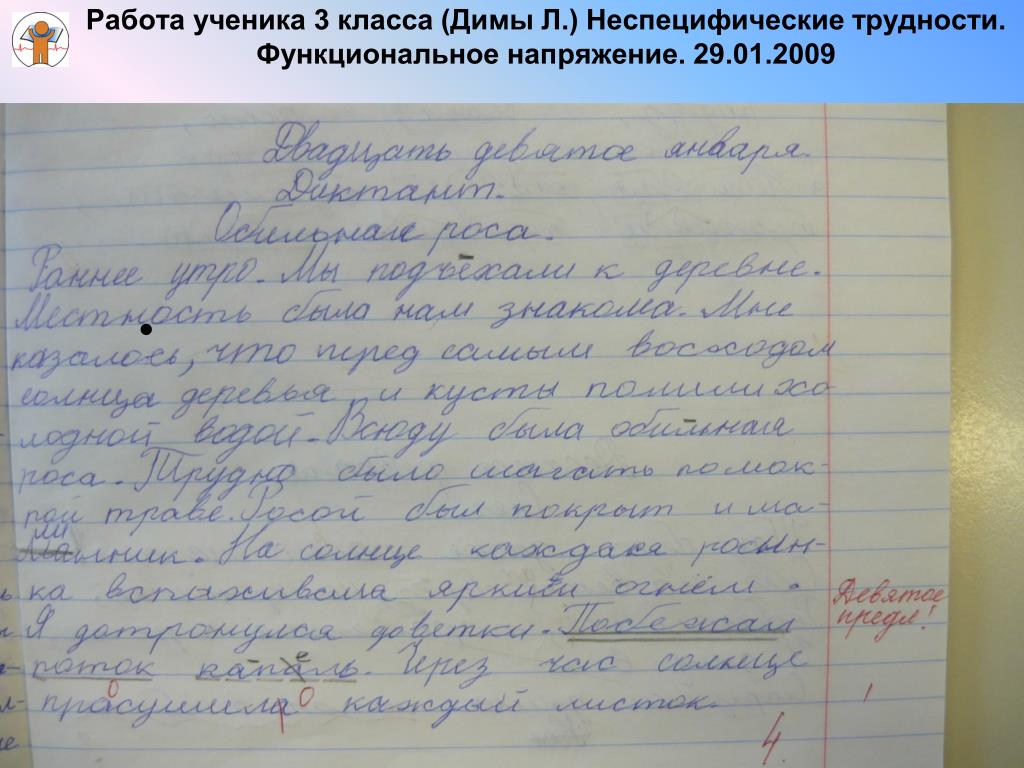 Работа ученика 3 класса (Димы Л.) Неспецифические трудности.
Функциональное напряжение. 29.01.2009
Двадцать девятое января.
Диктант.
Обильная роса.
Раннее утро. Мы подъехали к деревне.
Местность была нам знакома. Мне
казалось, что перед самым восходом
солнца деревья и кусты полили хо-
лодной водой. Всюду была обильная
роса. Трудно было шагать по мок-
рой траве. Росой был покрыт и ма-
ли
малиник. На солнце каждая росин-
ка вспыхивала ярким огнём.
Девятое
предл!
Я дотронулся до ветки. Побежал
поток капель. Через час солнце
просушила каждый листок.
о
4.